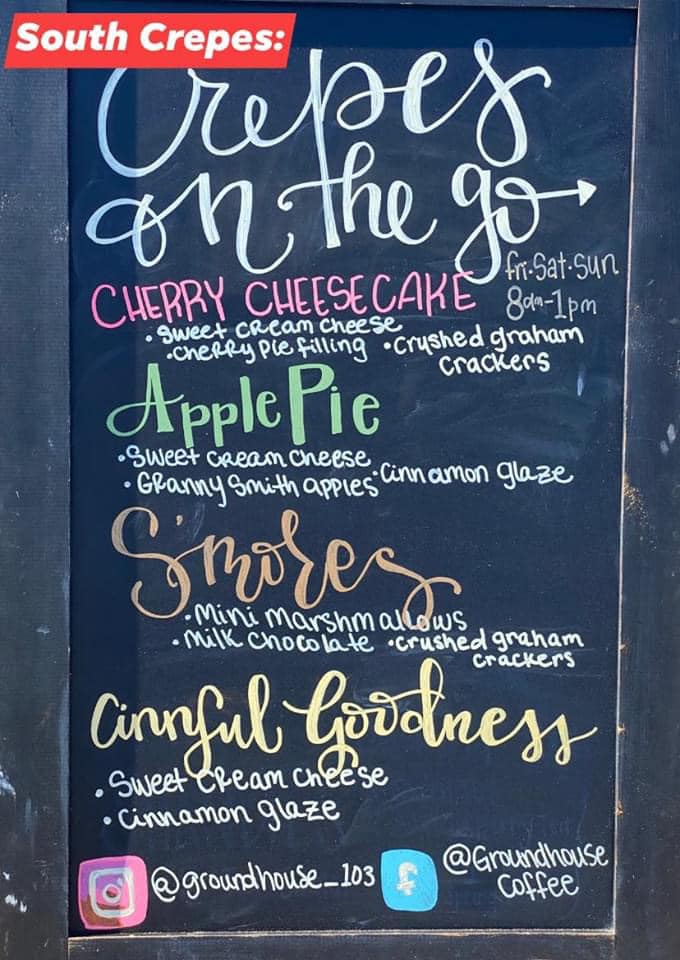 South Crepes:
Crepes
on the go
Fri·Sat·Sun
8am-1pm
CHERRY CHEESECAKE
• Sweet cream cheese
• Cherry pie filling • Crushed graham
crackers
Apple Pie
• Sweet cream cheese
• Granny Smith apples • Cinnamon glaze
S'mores
• Mini marshmallows
• Milk chocolate • crushed graham
crackers
Cinnful Goodness
• Sweet cream cheese
• Cinnamon glaze
@groundhouse_103
f
@Groundhouse
Coffee